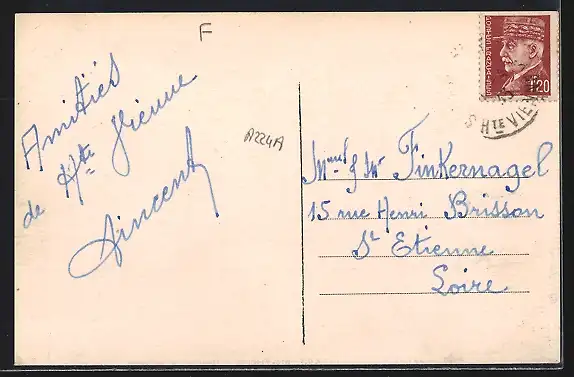 F
Amitiés
de Hte Vienne
Vincent
A224A
1F20
S HTE VIEN
Mme & Mr Finkernagel
15 rue Henri Brisson
St Etienne
Loire